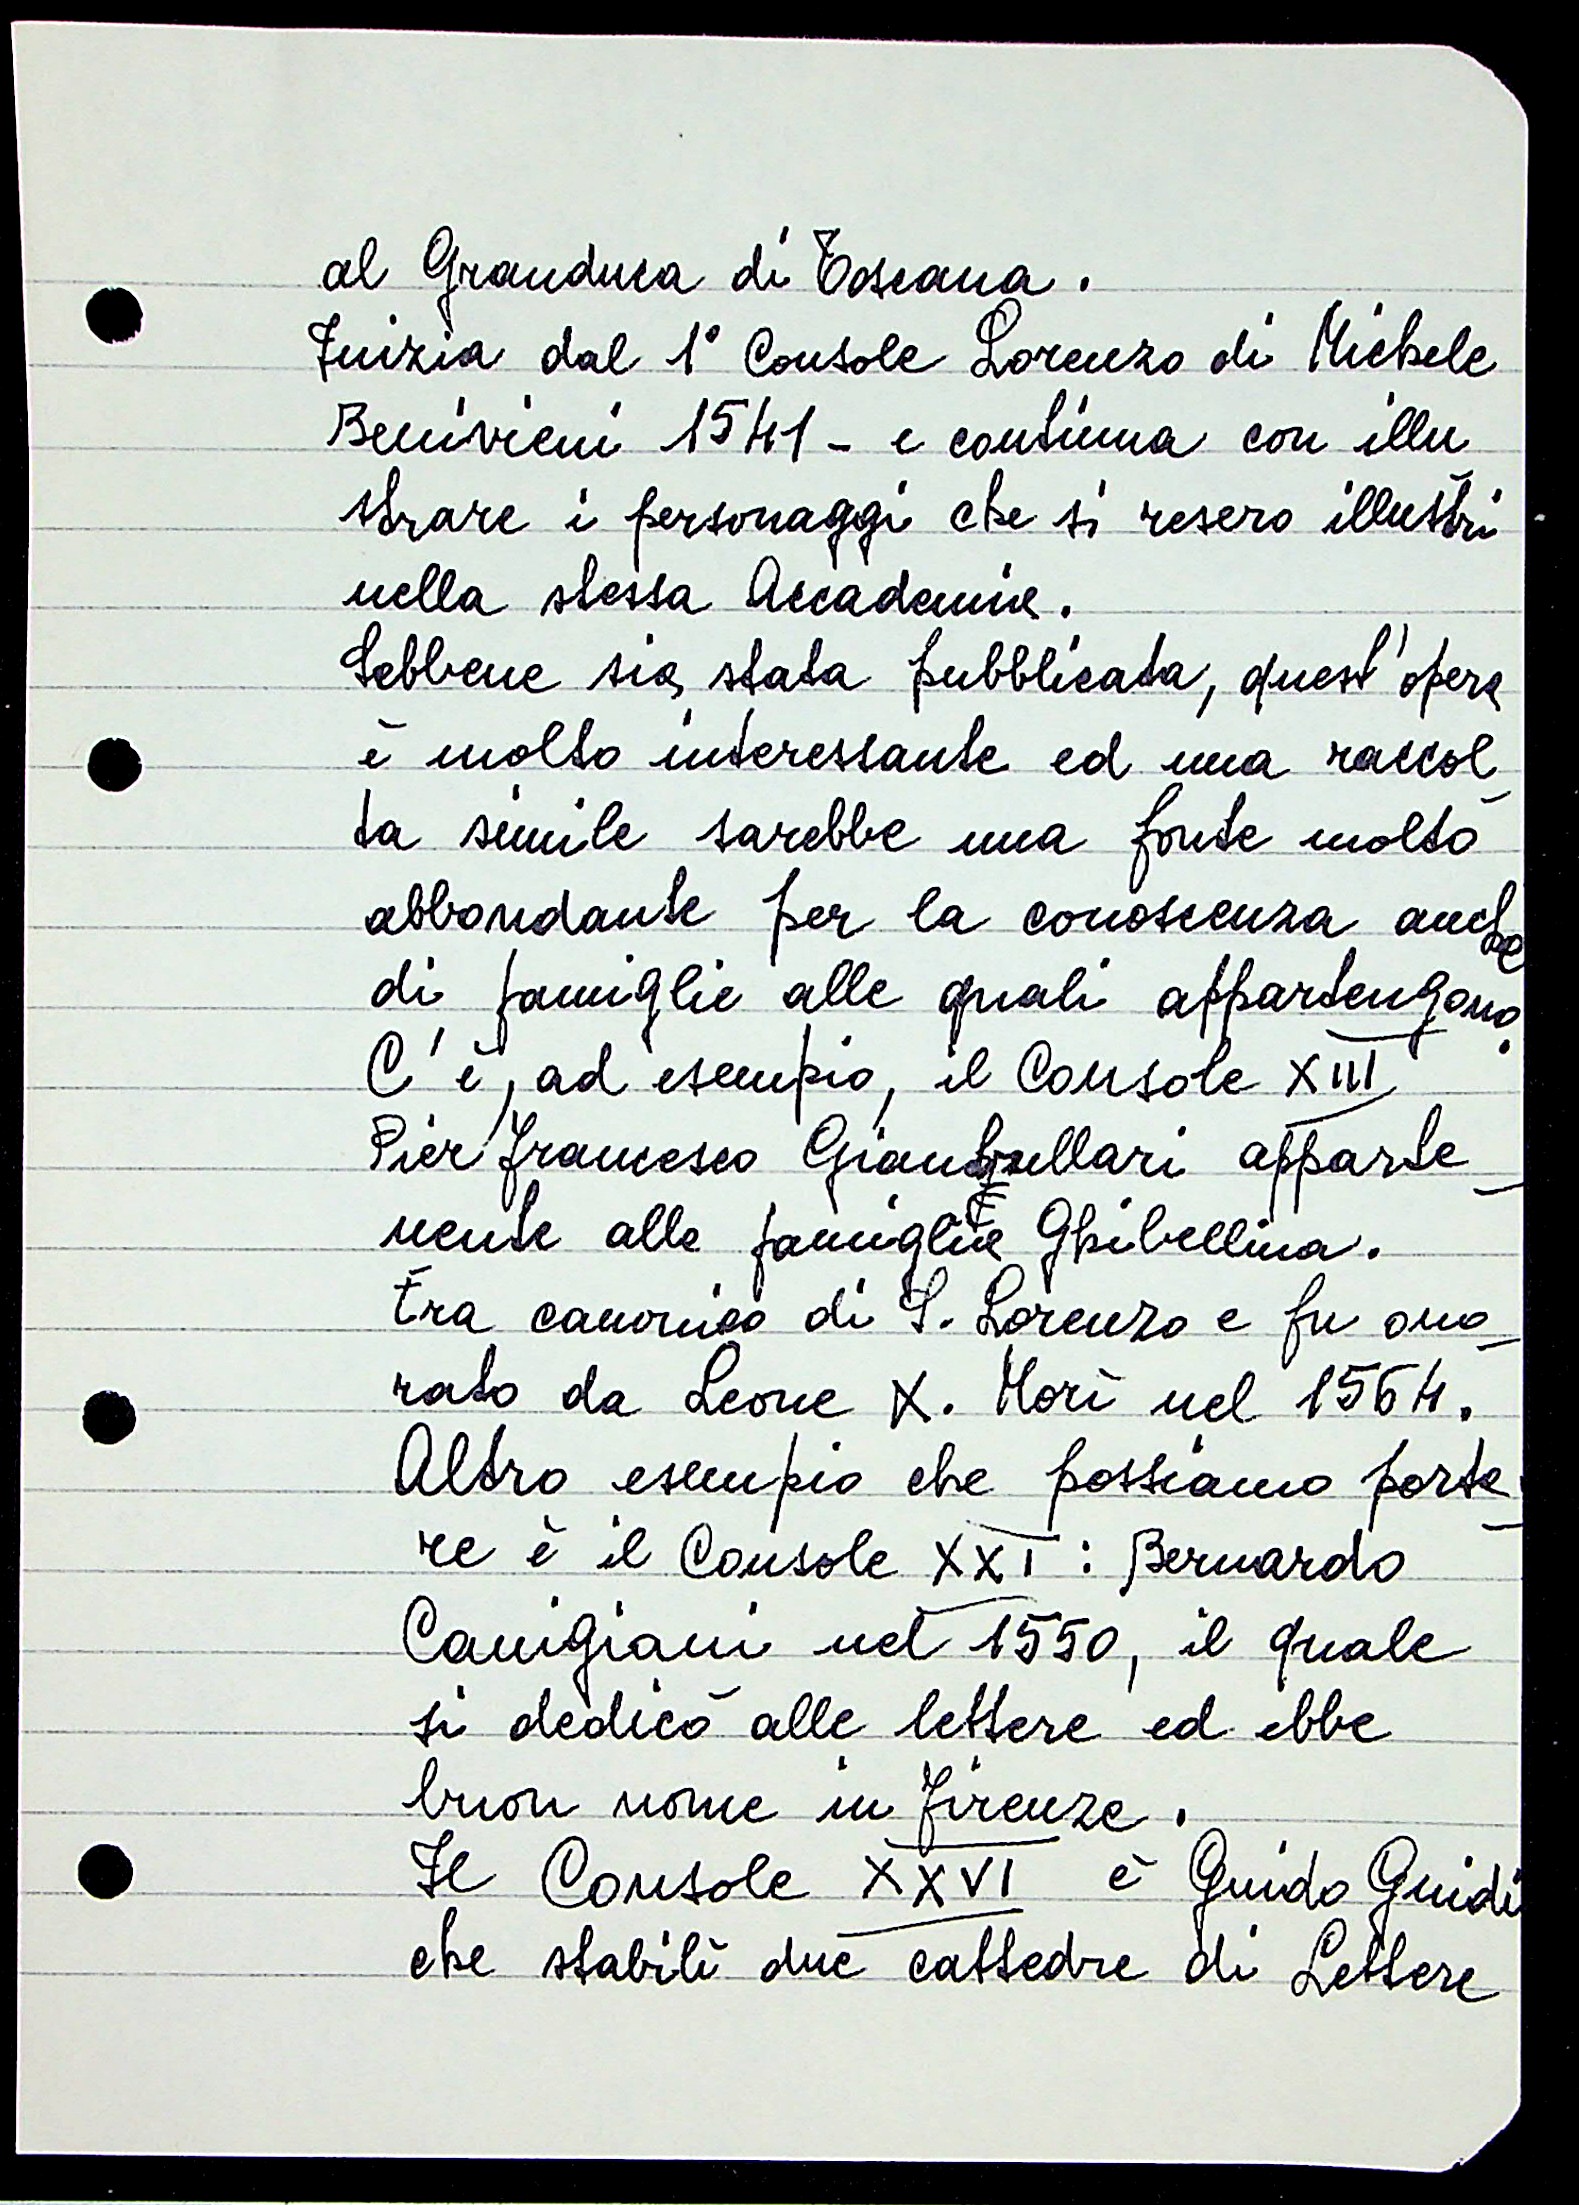 al Granduca di Toscana.
Inizia dal 1° Console Lorenzo di Michele
Benivieni 1541 - e continua con illu
strare i personaggi che si resero illustri
nella stessa Accademia.
Sebbene sia stata pubblicata, quest'opera
è molto interessante ed una raccol_
ta simile sarebbe una fonte molto
abbondante per la conoscenza anche
di famiglie alle quali appartengono.
C'è, ad esempio, il Console XIII
Pier Francesco Giambullari apparte_
nente alla famiglia Ghibellina.
Era canonico di S. Lorenzo e fu ono_
rato da Leone X. Morì nel 1564.
Altro esempio che possiamo porta_
re è il Console XXI : Bernardo
Canigiani nel 1550, il quale
si dedicò alle lettere ed ebbe
buon nome in Firenze.
Il Console XXVI è Guido Guidi
che stabilì due cattedre di Lettere